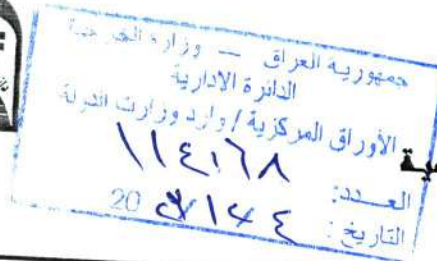 جمهورية العراق — وزارة الخارجية
الدائرة الادارية
الأوراق المركزية / وارد وزارات الدولة
العــدد: ١١٤١٦٨
التاريخ: 20